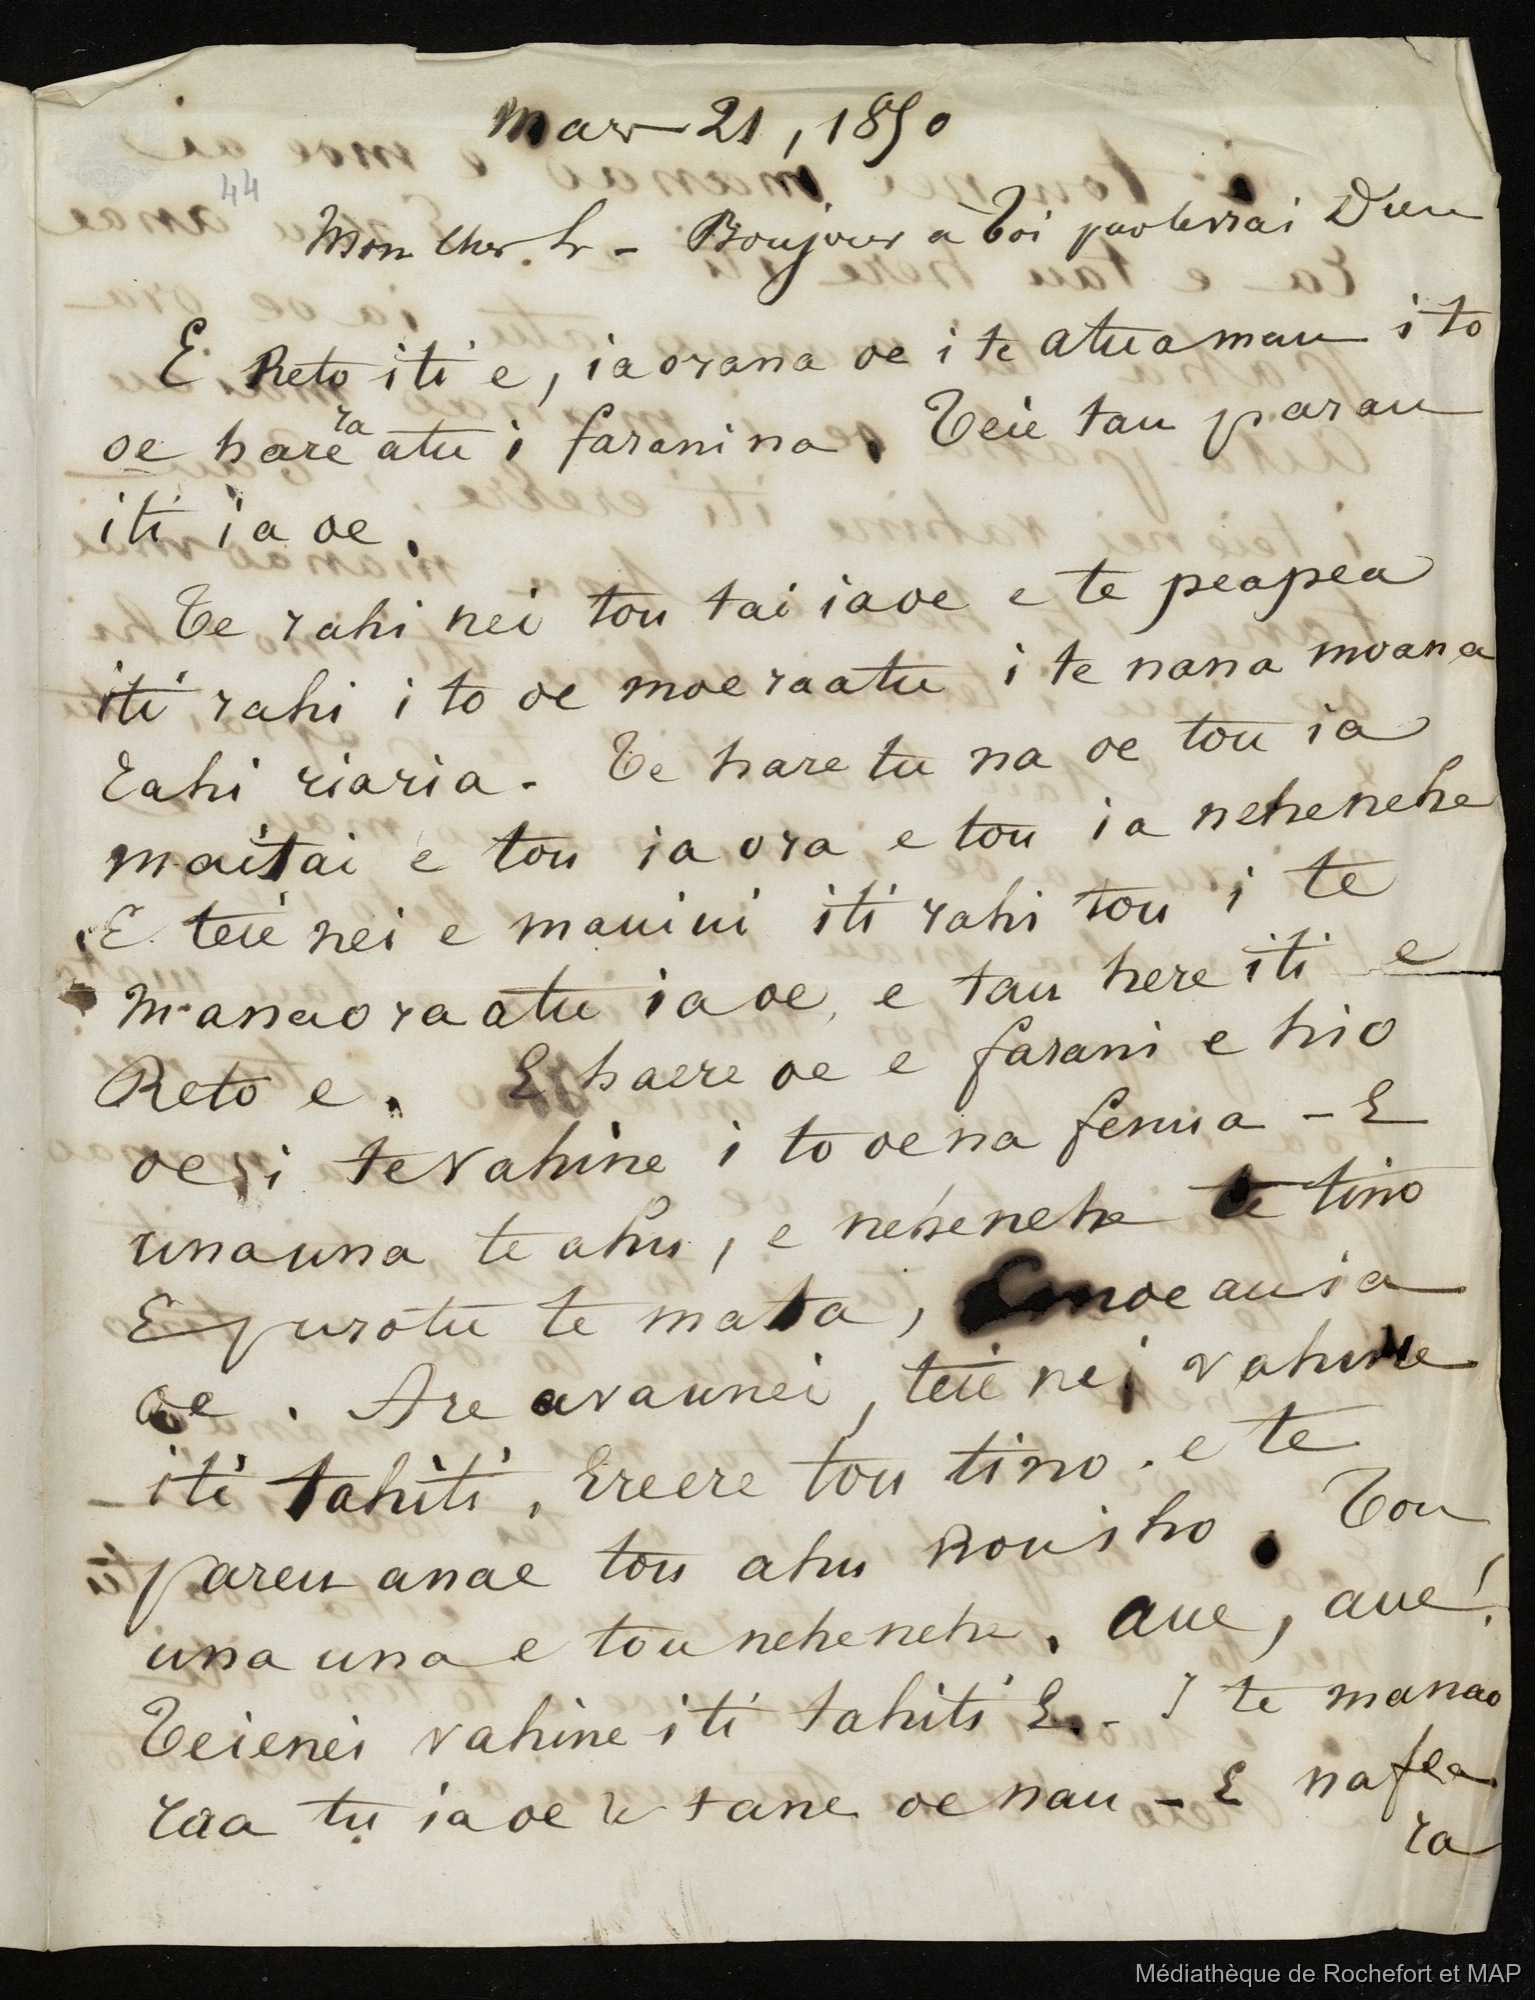 Mar 21, 1850
44
Mon Cher L – Boujour a Toi par le vrai Dieu
E Reto iti e, ia orana oe i te atua mau i to
oe hare ra atu i farani na. Teie tau parau
iti ia oe.
Te rahi nei tou tai ia oe e te peapea
iti rahi i to oe moe raatu i te nana moana
rahi riaria. Te hare tu na oe tou ia
maitai e tou ia ora e tou ia nehenehe
E teie nei e mauiui iti rahi tou i te
manao ra atu ia oe, e tau here iti e
Reto e. E haere oe e farani e hio
oe i te vahine i to oe na fenua – E
unauna te ahu, e nehenehe te tino
E purotu te mata, E moe au ia
oe. Are avau nei, teie nei vahine
iti tahiti, Ereere tou tino. e te
pareu anae tou ahu Rouiho. Tou
una una e tou nehenehe. aue, aue!
Teienei vahine iti tahiti E. – I te manao
raa tu ia oe te tane oe nau – E nafea
ra
Médiathèque de Rochefort et MAP